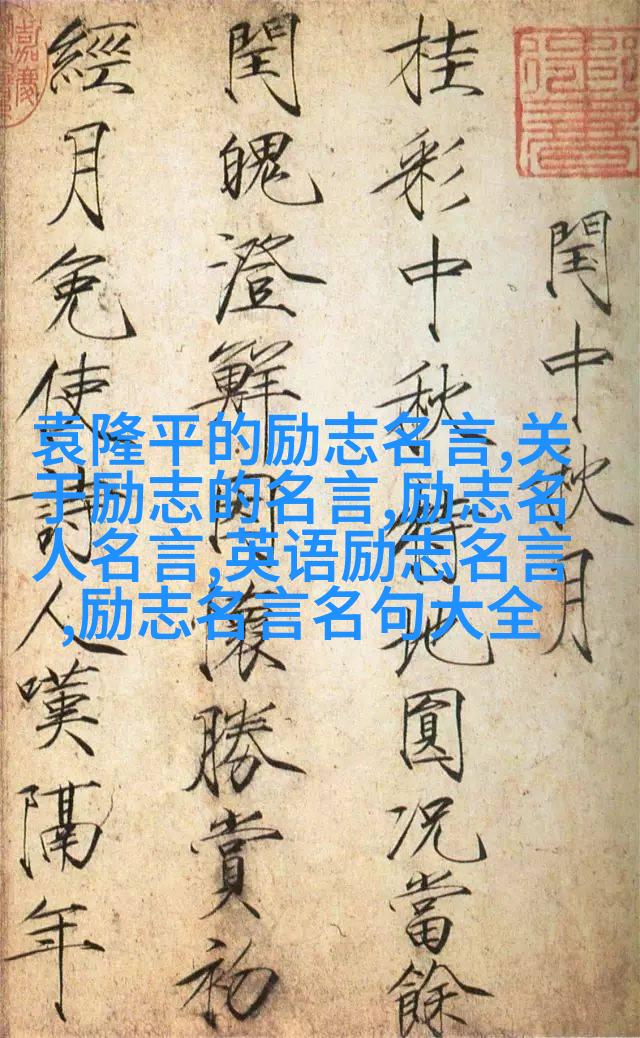 閏中秋月
桂彩中秋特地圓況當餘
閏魄澄鮮因懷勝賞初
經月免使詩人嘆隔年
袁隆平的励志名言,关
于励志的名言,励志名
人名言,英语励志名言
,励志名言名句大全